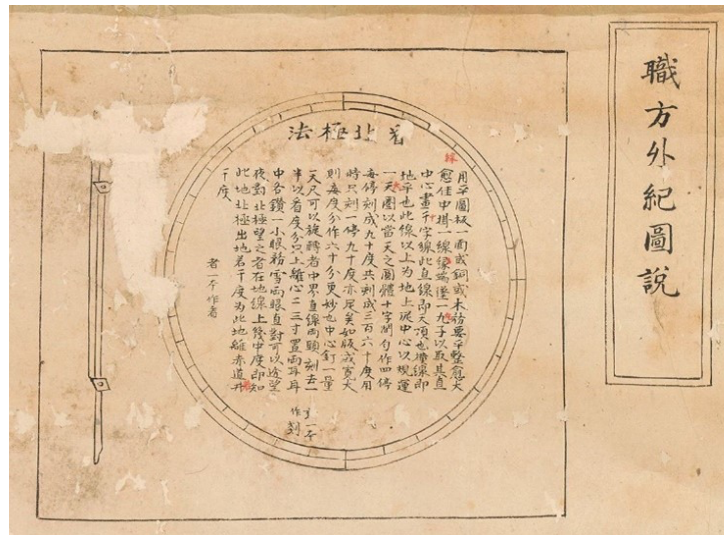 職方外紀圖說
看北極法
用平圓板一面或銅或木務要平整愈大
愈佳中掛一線線端墜一丸子以取其直
中心畫十字線此直線即天頂也橫線即
地平也此線以上為地上從中心以規運
一大圈以當天之圓體十字間勻作四停
每停刻成九十度共刻成三百六十度用
時只刻一停九十度亦足矣如版或寬大
則每度分作六十分更妙也中心釘一量
天尺可以旋轉者中界直線兩頭刻去一
半以看度分尺上離心二三寸置兩耳耳
中各鑽一小眼務兩眼直對可以透望
夜對北極望之者在地線上幾中度即知
此地北極出地若干度為此地離赤道
干度
一本作刻
者一本作看